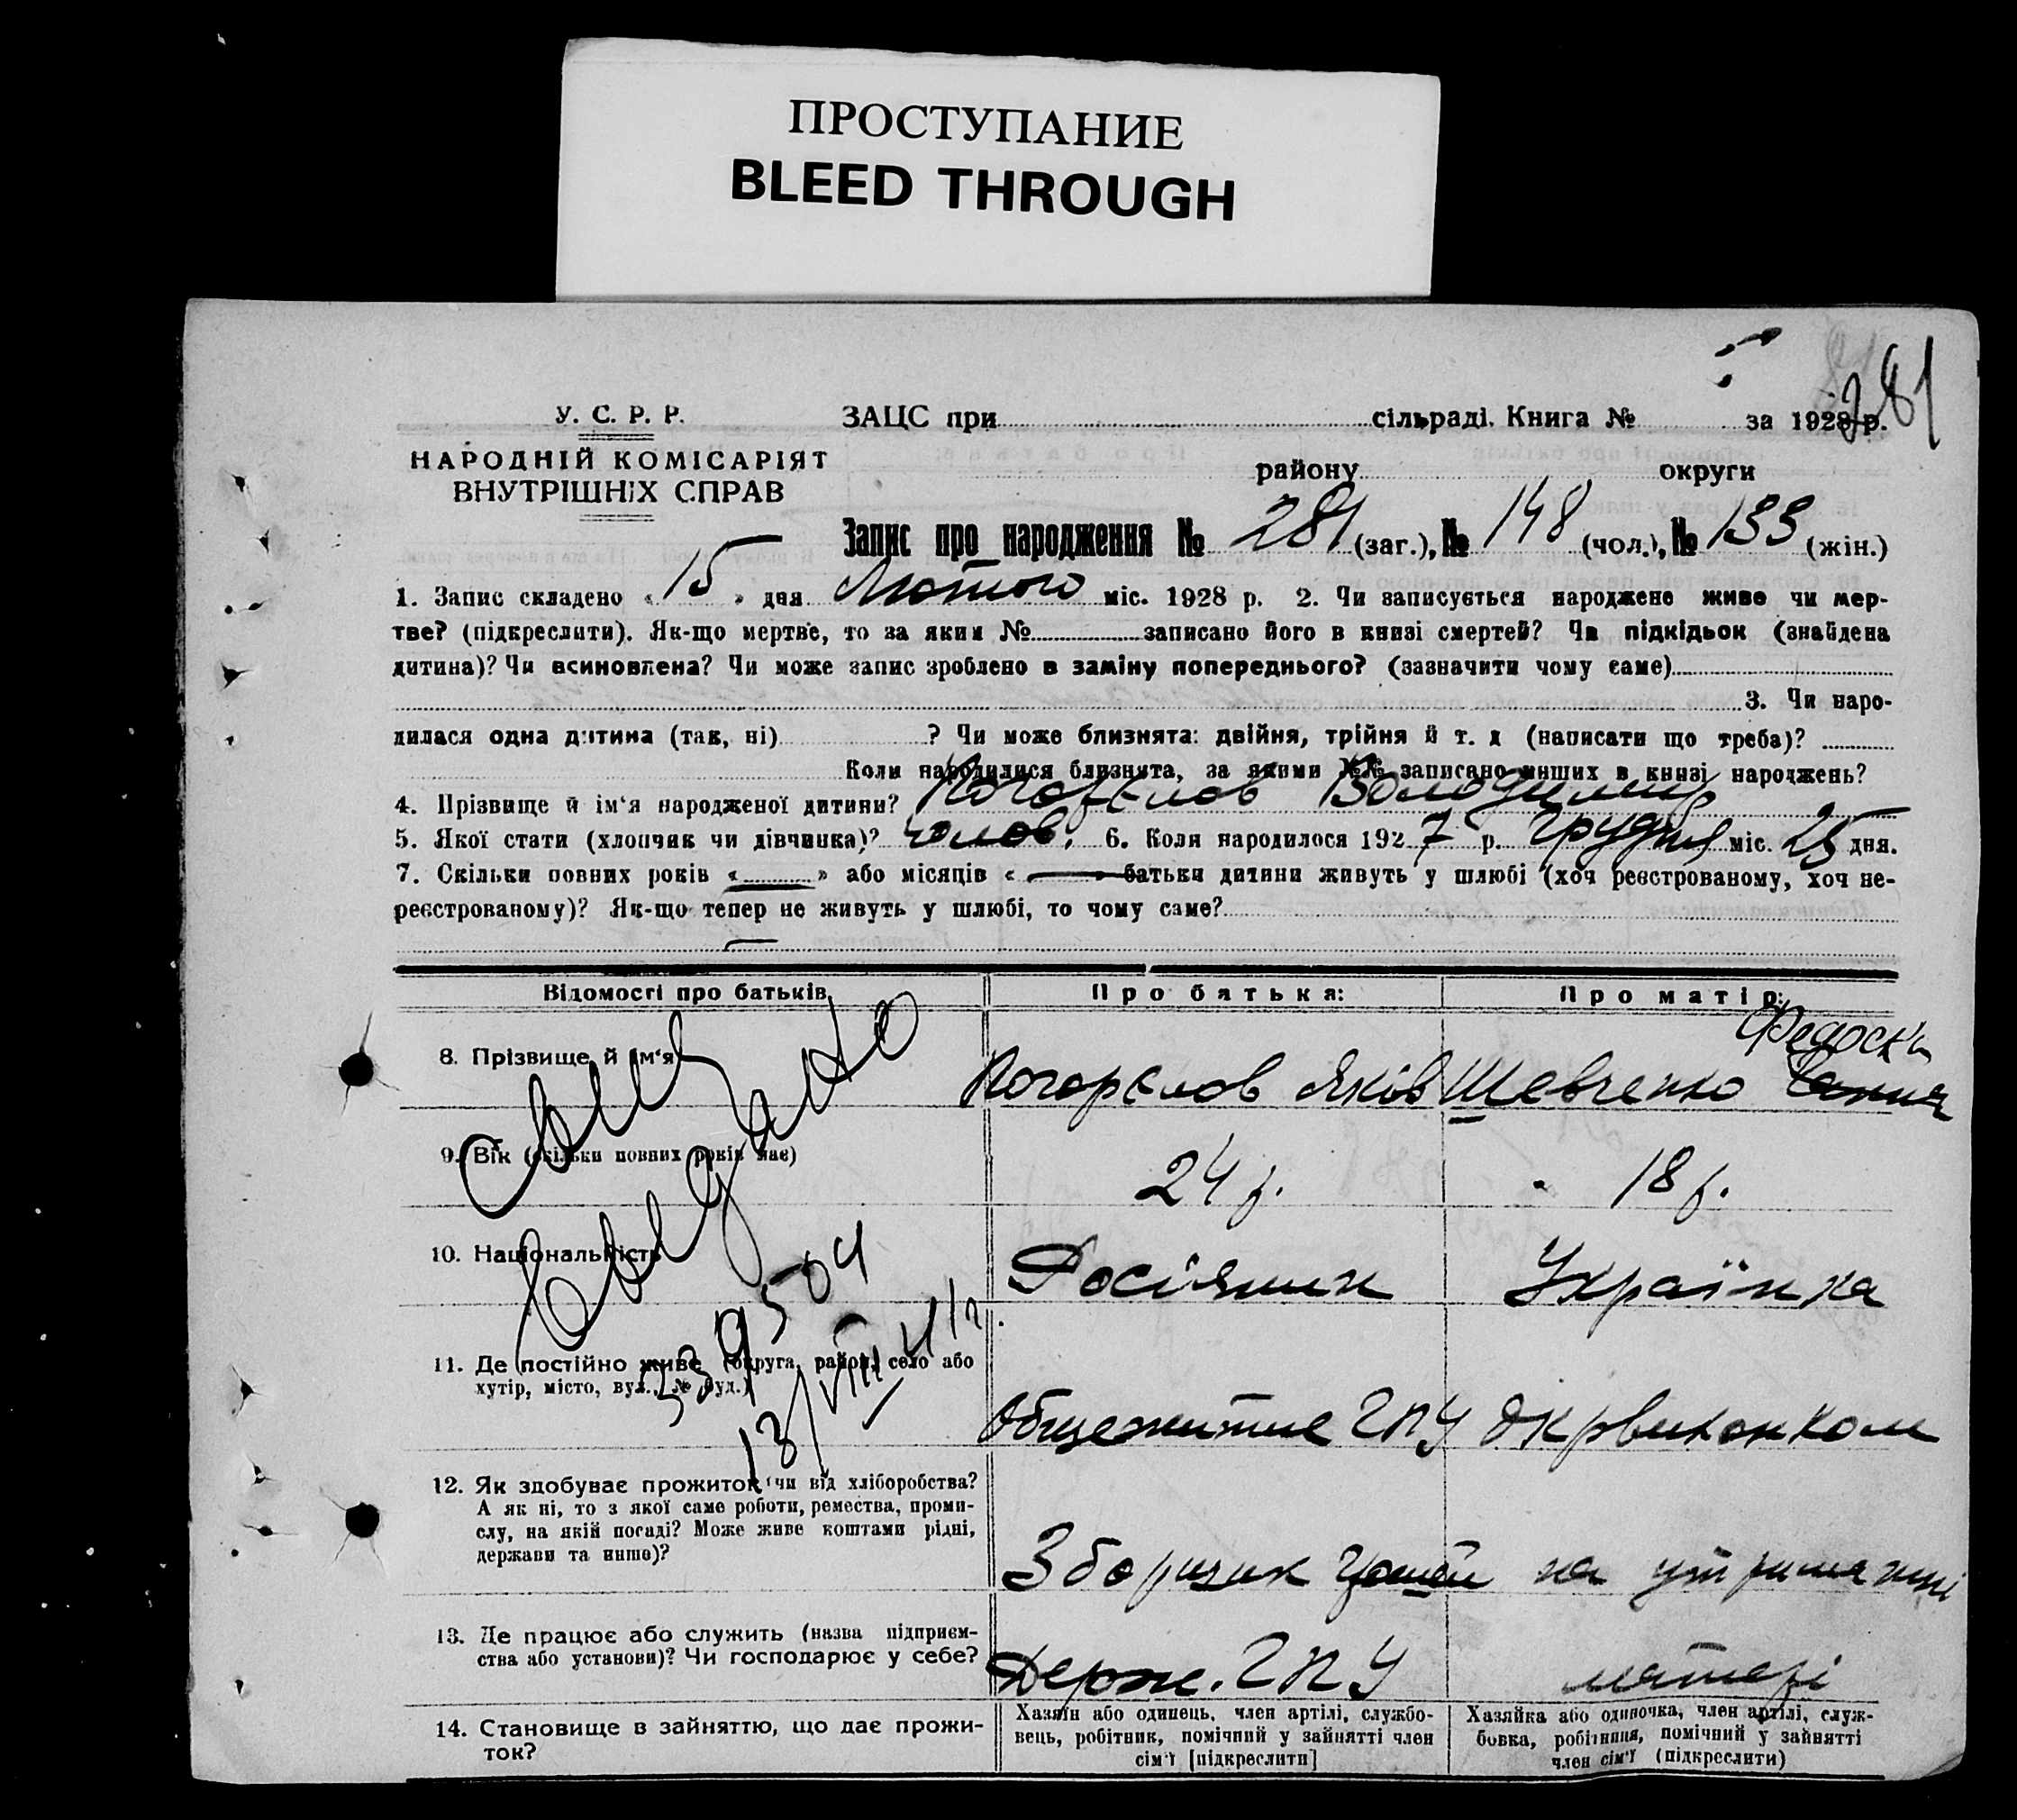 ПРОСТУПАНИЕ
BLEED THROUGH
281
У. С. Р. Р.
НАРОДНІЙ КОМІСАРІЯТ
ВНУТРІШНІХ СПРАВ
ЗАЦС при сільраді. Книга № за 1928 р.
району округи
Запис про народження № 281 (заг.), № 148 (чол.), № 133 (жін.)
1. Запис складено « 15 » дня Лютого міс. 1928 р. 2. Чи записується народжене живе чи мер-
тве? (підкреслити). Як-що мертве, то за яким № записано його в книзі смертей? Чи підкідьок (знайдена
дитина)? Чи всиновлена? Чи може запис зроблено в заміну попереднього? (зазначити чому саме)
3. Чи наро-
дилася одна дитина (так, ні) ? Чи може близнята: двійня, трійня й т. д (написати що треба)?
Коли народилися близнята, за якими №№ записано инших в книзі народжень?
4. Прізвище й ім‘я народженої дитини? Погорєлов Володимир
5. Якої стати (хлопчик чи дівчинка)? чолов. 6. Коли народилося 1927 р. Грудня міс. 25 дня.
7. Скільки повних років « » або місяців « батьки дитини живуть у шлюбі (хоч реєстрованому, хоч не-
реєстрованому)? Як-що тепер не живуть у шлюбі, то чому саме?
Відомості про батьків Про батька: Про матір:
Федоска
8. Прізвище й ім‘я Погорєлов Яків Шевченко
9. Вік (скільки повних років має) 24 р. 18 р.
10. Національність Росіянин Українка
11. Де постійно живе (округа, район, село або
хутір, місто, вул., № буд.) Общежитие ГПУ Окрвиконком
12. Як здобуває прожиток (чи від хліборобства?
А як ні, то з якої саме роботи, ремества, проми-
слу, на якій посаді? Може живе коштами рідні,
держави та инше)? Зборщик на утриманні
13. Де працює або служить (назва підприєм-
ства або установи)? Чи господарює у себе? Держ. ГПУ матері
14. Становище в зайняттю, що дає прожи-
ток?
Хазяїн або одинець, член артілі, службо-
вець, робітник, помічний у зайнятті член
сім‘ї [підкреслити]
Хазяйка або одиночка, член артілі, служ-
бовка, робітниця, помічний у зайнятті
член сім‘ї (підкреслити)
539504
13/VIII